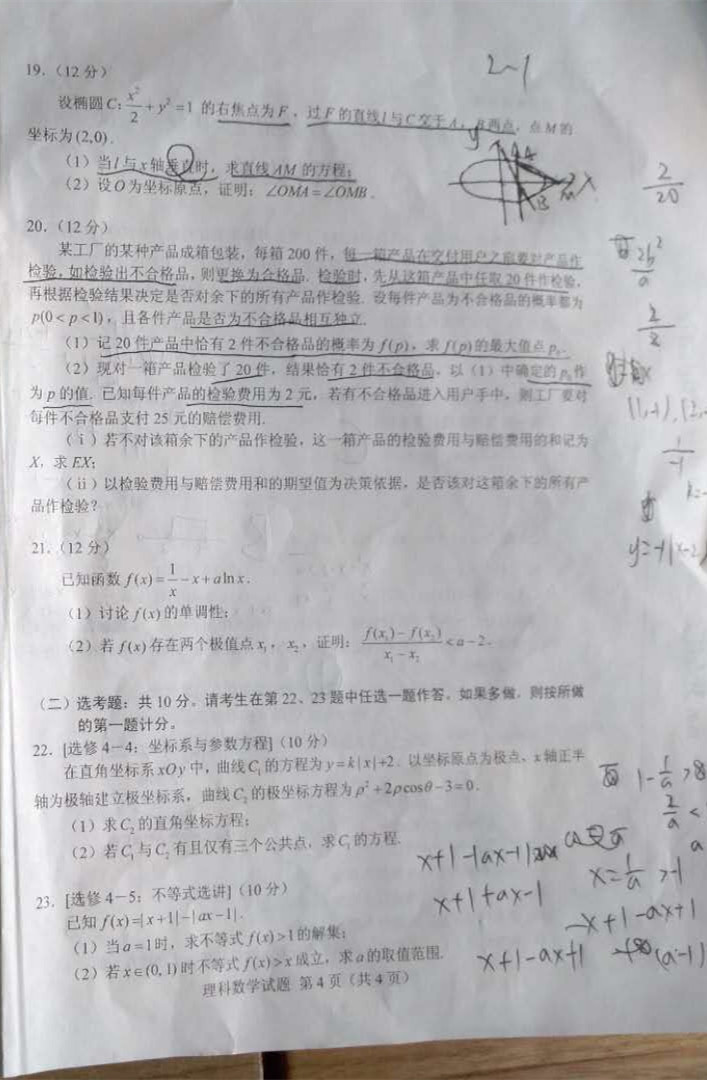 2-1
19.（12分）
设椭圆C: x²/2 + y² = 1 的右焦点为F，过F的直线l与C交于A，B两点，点M的
坐标为(2,0).
（1）当l与x轴垂直时，求直线AM的方程；
（2）设O为坐标原点，证明：∠OMA=∠OMB.
y
A
B
M
x
2/20
20.（12分）
某工厂的某种产品成箱包装，每箱200件，每一箱产品在交付用户之前要对产品作
检验，如检验出不合格品，则更换为合格品.检验时，先从这箱产品中任取20件作检验，
再根据检验结果决定是否对余下的所有产品作检验.设每件产品为不合格品的概率都为
p(0<p<1)，且各件产品是否为不合格品相互独立.
（1）记20件产品中恰有2件不合格品的概率为f(p)，求f(p)的最大值点p₀.
（2）现对一箱产品检验了20件，结果恰有2件不合格品，以（1）中确定的p₀作
为p的值.已知每件产品的检验费用为2元，若有不合格品进入用户手中，则工厂要对
每件不合格品支付25元的赔偿费用.
（ⅰ）若不对该箱余下的产品作检验，这一箱产品的检验费用与赔偿费用的和记为
X，求EX；
（ⅱ）以检验费用与赔偿费用和的期望值为决策依据，是否该对这箱余下的所有产
品作检验？
2b²/a
2/2
1/-1
k=-
y=-1(x-2)
21.（12分）
已知函数f(x)=1/x-x+alnx.
（1）讨论f(x)的单调性；
（2）若f(x)存在两个极值点x₁，x₂，证明：(f(x₁)-f(x₂))/(x₁-x₂)<a-2.
（二）选考题：共10分。请考生在第22、23题中任选一题作答。如果多做，则按所做
的第一题计分。
22.[选修4-4：坐标系与参数方程]（10分）
在直角坐标系xOy中，曲线C₁的方程为y=k|x|+2.以坐标原点为极点、x轴正半
轴为极轴建立极坐标系，曲线C₂的极坐标方程为ρ²+2ρcosθ-3=0.
（1）求C₂的直角坐标方程；
（2）若C₁与C₂有且仅有三个公共点，求C₁的方程.
23.[选修4-5：不等式选讲]（10分）
已知f(x)=|x+1|-|ax-1|.
（1）当a=1时，求不等式f(x)>1的解集；
（2）若x∈(0,1)时不等式f(x)>x成立，求a的取值范围.
理科数学试题 第4页（共4页）
2/a<
a
x+1-|ax-1|
x+1+ax-1
x=1/a>-1
-x+1-ax+1
x+1-ax+1
(a-1)